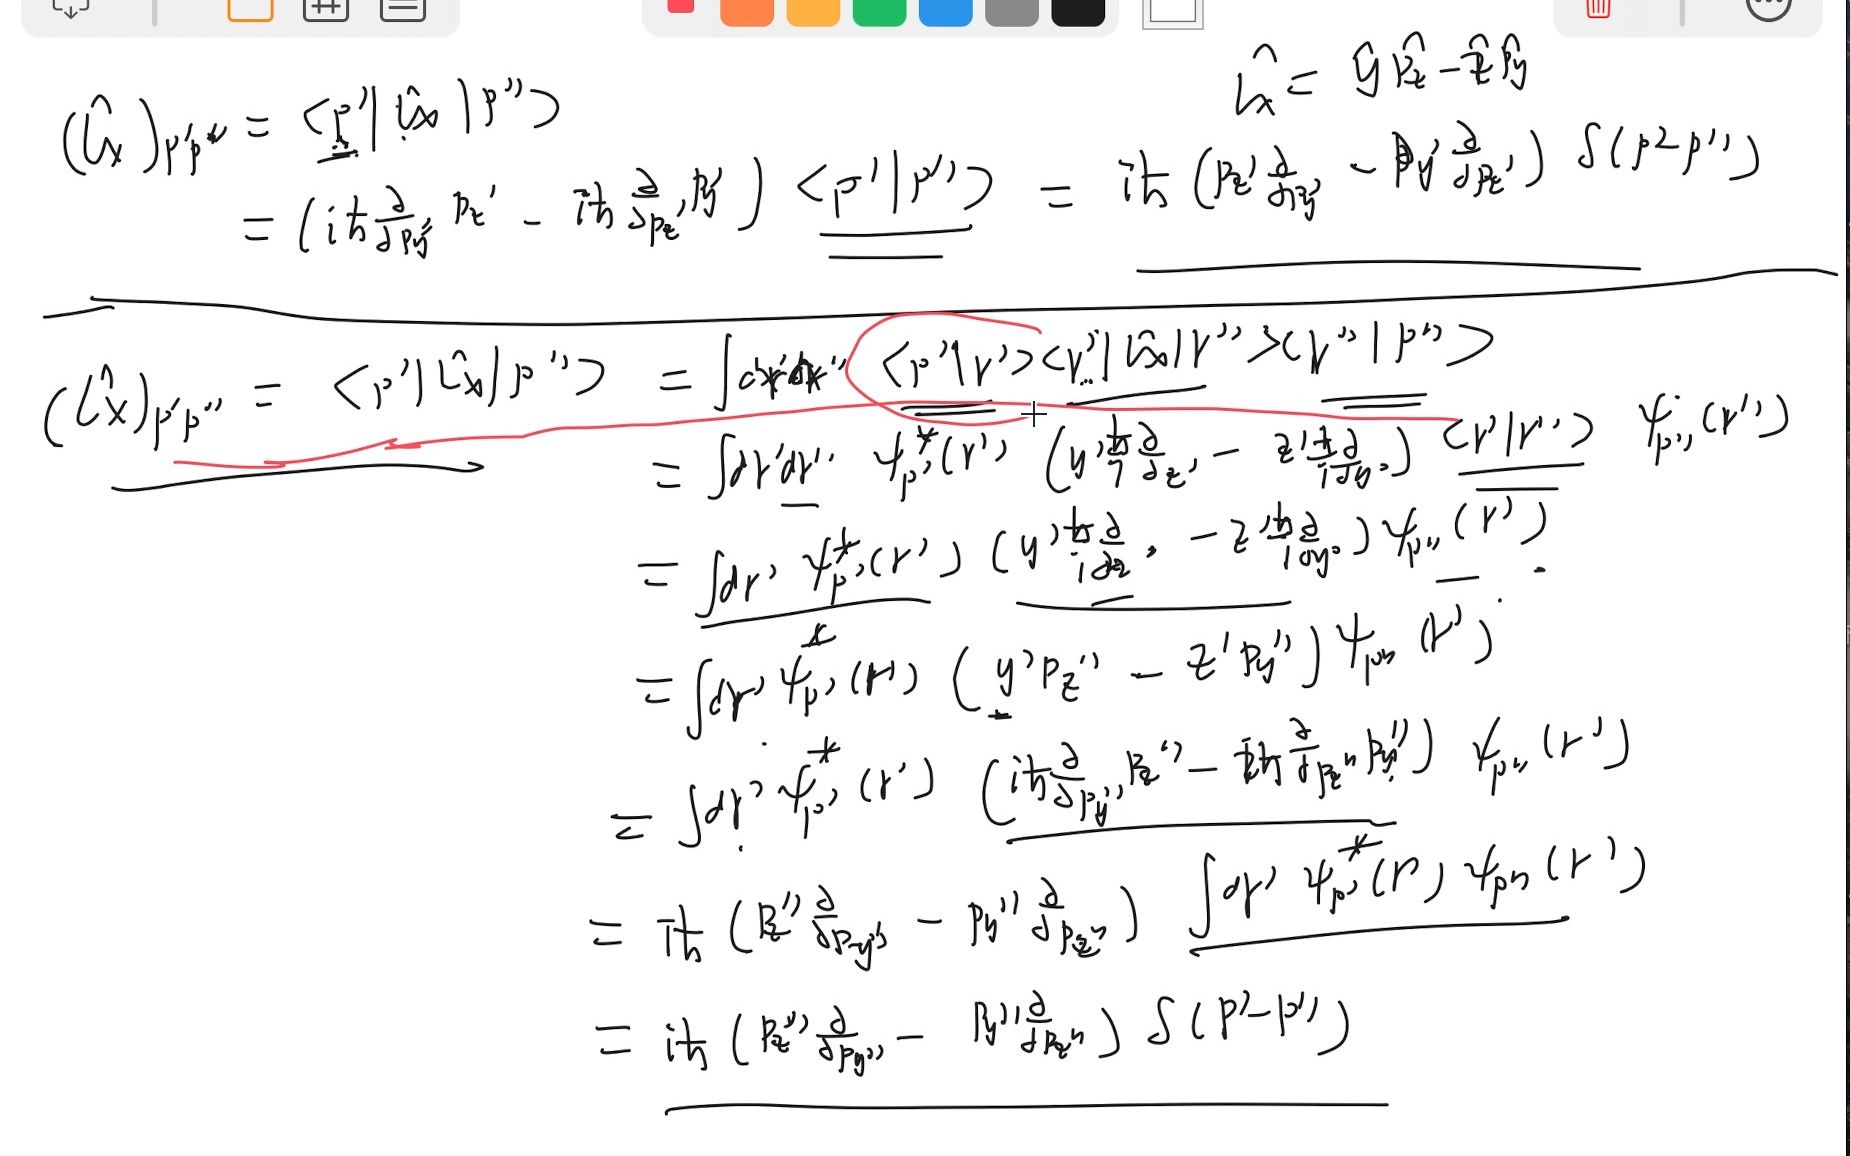 L̂x = ŷ p̂z − ẑ p̂y
(L̂x)p'p'' = <p'|L̂x|p''>
= (iħ ∂/∂py' pz' − iħ ∂/∂pz' py') <p'|p''> = iħ (pz' ∂/∂py' − py' ∂/∂pz') δ(p'−p'')
(L̂x)p'p'' = <p'|L̂x|p''> = ∫dr'dr'' <p'|r'><r'|L̂x|r''><r''|p''>
= ∫dr'dr'' ψ*p'(r') (y' ħ/i ∂/∂z' − z' ħ/i ∂/∂y') <r'|r''> ψp''(r'')
= ∫dr' ψ*p'(r') (y' ħ/i ∂/∂z' − z' ħ/i ∂/∂y') ψp''(r')
= ∫dr' ψ*p'(r') (y'pz'' − z'py'') ψp''(r')
= ∫dr' ψ*p'(r') (iħ ∂/∂py'' pz'' − iħ ∂/∂pz'' py'') ψp''(r')
= iħ (pz'' ∂/∂py'' − py'' ∂/∂pz'') ∫dr' ψ*p'(r') ψp''(r')
= iħ (pz'' ∂/∂py'' − py'' ∂/∂pz'') δ(p'−p'')